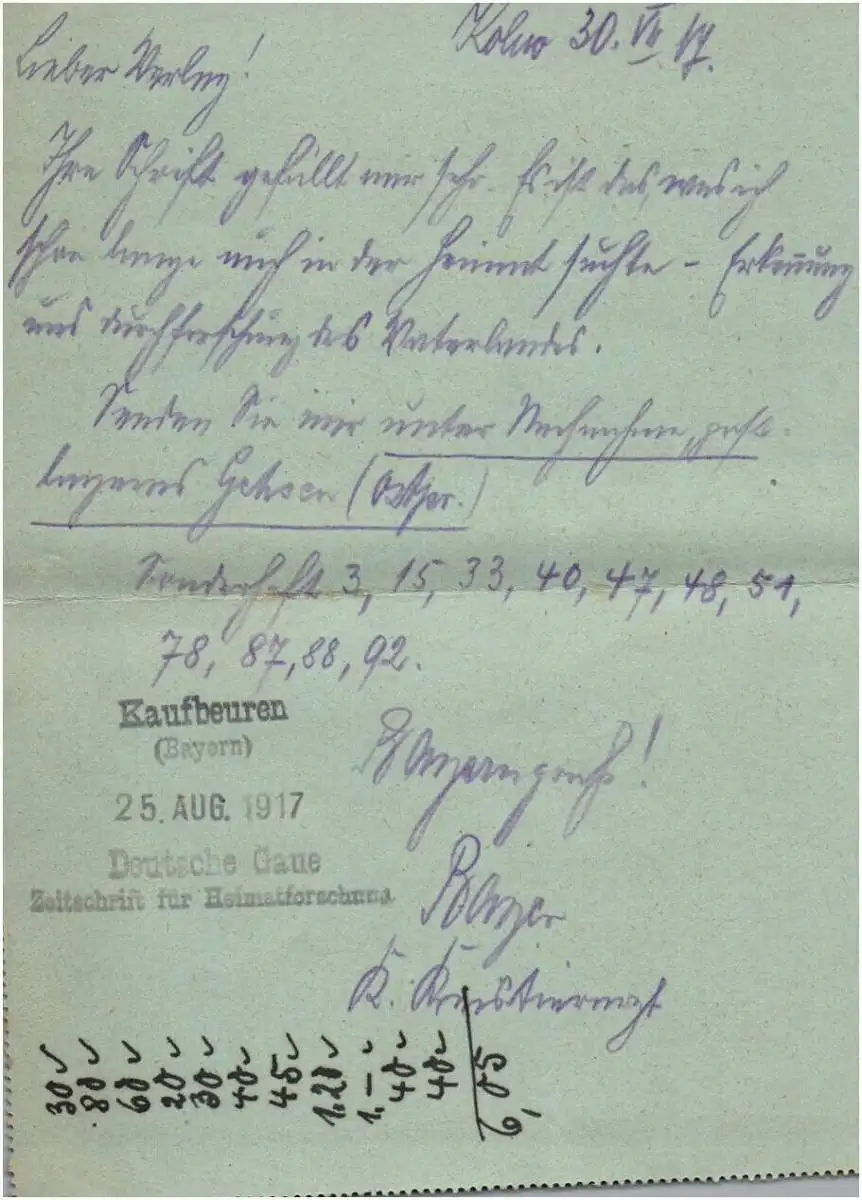 Kolno 30. VII. 17.
Lieber Verlag!
Ihre Schrift gefällt mir sehr. Es ist das, was ich
schon lange auch in der Heimat suchte – Erkennung
und Durchforschung des Vaterlandes.
Senden Sie mir unter Nachnahme, post-
lagernd (Ostpr.)
Sonderheft 3, 15, 33, 40, 47, 48, 51,
78, 87, 88, 92.
Kaufbeuren
(Bayern)
25. AUG. 1917
Deutsche Gaue
Zeitschrift für Heimatforschung
Bayerngruß!
Bayer
K. Kreistierarzt
30
80
60
20
30
40
45
1.20
1.–
40
40
6,05